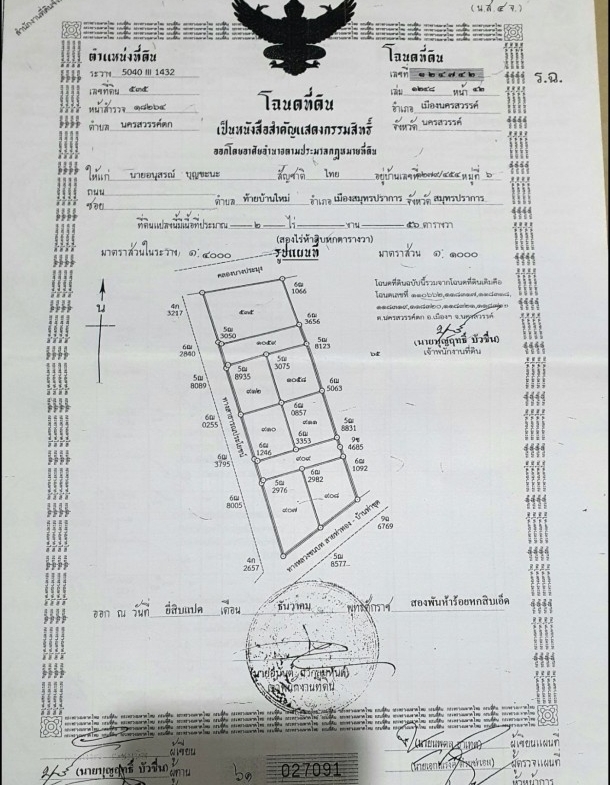 (น.ส.๔ จ.)
ตำแหน่งที่ดิน
ระวาง 5040 III 1432
เลขที่ดิน ๕๓๕
หน้าสำรวจ ๑๘๒๖๔
ตำบล นครสวรรค์ตก
โฉนดที่ดิน
เลขที่ ๑๒๔๗๔๒
เล่ม ๑๒๔๘ หน้า ๔๒
อำเภอ เมืองนครสวรรค์
จังหวัด นครสวรรค์
ร.ฉ.
โฉนดที่ดิน
เป็นหนังสือสำคัญแสดงกรรมสิทธิ์
ออกโดยอาศัยอำนาจตามประมวลกฎหมายที่ดิน
ให้แก่ นายอนุสรณ์ บุญขะนะ สัญชาติ ไทย อยู่บ้านเลขที่ ๑๒๗๙/๔๕๔ หมู่ที่ ๖
ถนน
ซอย ตำบล ท้ายบ้านใหม่ อำเภอ เมืองสมุทรปราการ จังหวัด สมุทรปราการ
ที่ดินแปลงนี้มีเนื้อที่ประมาณ ๒ ไร่ งาน ๕๖ ตารางวา
(สองไร่ห้าสิบหกตารางวา)
มาตราส่วนในระวาง ๑:๔๐๐๐ รูปแผนที่ มาตราส่วน ๑:๑๐๐๐
คลองบางประมุง
น
โฉนดที่ดินฉบับนี้รวมจากโฉนดที่ดินเดิมคือ
ต.นครสวรรค์ตก อ.เมืองฯ จ.นครสวรรค์
(นายบุญฤทธิ์ บัวชื่น)
เจ้าพนักงานที่ดิน
4ก
3217
6ฌ
1066
๕๓๕
6ฌ
3656
5ฌ
3050
6ฌ
2840
๑๐๕๙
5ฌ
8123
๖๕
5ฌ
8089
5ฌ
8935
5ฌ
3075
๑๐๕๘
6ฌ
5063
๙๑๒
6ฌ
0857
6ฌ
0255
ทางสาธารณประโยชน์
๙๑๐
๙๑๑
5ฌ
8831
6ฌ
1246
6ฌ
3353
9ช
4685
6ฌ
3795
๙๐๙
6ฌ
1092
5ฌ
2976
6ฌ
2982
6ฌ
8005
๙๐๗
๙๐๘
ทางหลวงชนบท สายท่าทอง - บ้านท่าขุด
9ฉ
6769
4ก
2657
5ฌ
8577
ออก ณ วันที่ ยี่สิบแปด เดือน ธันวาคม พุทธศักราช สองพันห้าร้อยหกสิบเอ็ด
เจ้าพนักงานที่ดิน
ผู้เขียน
(นายบุญฤทธิ์ บัวชื่น) ผู้ทาน
๖๑ 027091
ผู้เขียนแผนที่
ผู้ตรวจแผนที่
หัวหน้าการ